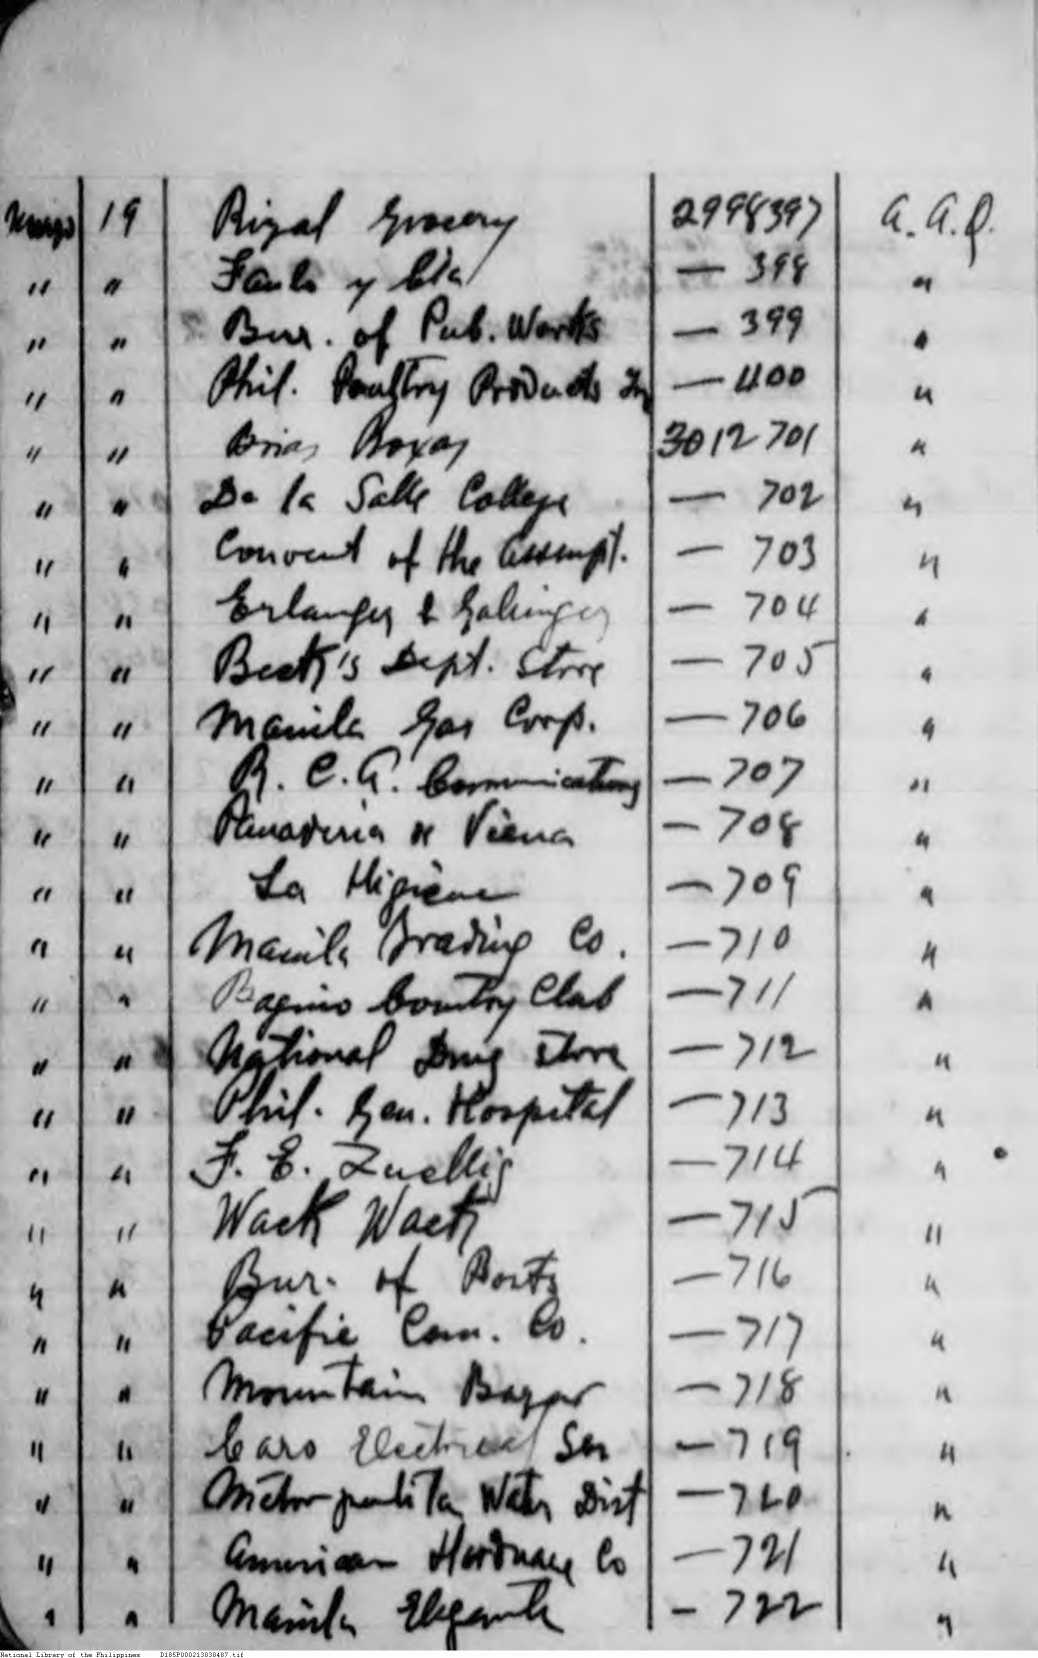 Marzo 19 Rizal Grocery 2998397 A.A.Q.
" " y Cia — 398 "
" " Bur. of Pub. Works — 399 "
" " Phil. Poultry Products In — 400 "
" " Roxas 3012701 "
" " De la Salle College — 702 "
" " Convent of the Assumpt. — 703 "
" " Erlanger & Galinger — 704 "
" " Beck's Dept. Store — 705 "
" " Manila Gas Corp. — 706 "
" " R. C. A. Communications — 707 "
" " Panaderia de Viena — 708 "
" " La Higiene — 709 "
" " Manila Trading Co. — 710 "
" " Baguio Country Club — 711 "
" " National Drug Store — 712 "
" " Phil. Gen. Hospital — 713 "
" " F. E. Zuellig — 714 "
" " Wack Wack — 715 "
" " Bur. of Posts — 716 "
" " Pacific Com. Co. — 717 "
" " Mountain Bazar — 718 "
" " Caro Electrical Ser — 719 "
" " Metropolitan Water Dist — 720 "
" " American Hardware Co — 721 "
" " Manila Elegante — 722 "
National Library of the Philippines D185P000213838487.tif